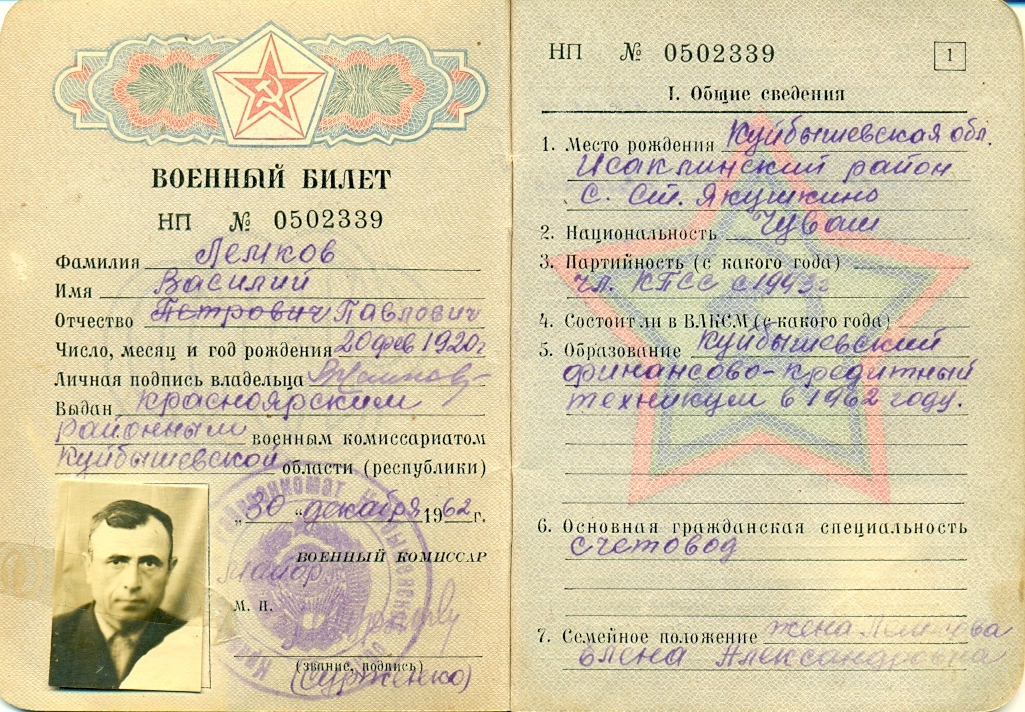 ВОЕННЫЙ БИЛЕТ
НП № 0502339
Фамилия Лемков
Имя Василий
Отчество Петрович Павлович
Число, месяц и год рождения 20 фев 1920 г
Личная подпись владельца
Выдан Красноярским
районным военным комиссариатом
Куйбышевской области (республики)
„30“ декабря 1962 г.
ВОЕННЫЙ КОМИССАР
майор
М. П.
(звание, подпись)
(Сурженко)
НП № 0502339
1
I. Общие сведения
1. Место рождения Куйбышевская обл.
Исаклинский район
с. Ст. Якушкино
2. Национальность Чуваш
3. Партийность (с какого года)
чл. КПСС с 1943г
4. Состоит ли в ВЛКСМ (с какого года)
5. Образование Куйбышевский
финансово-кредитный
техникум в 1962 году.
6. Основная гражданская специальность
счетовод
7. Семейное положение жена Лемкова
Елена Александровна